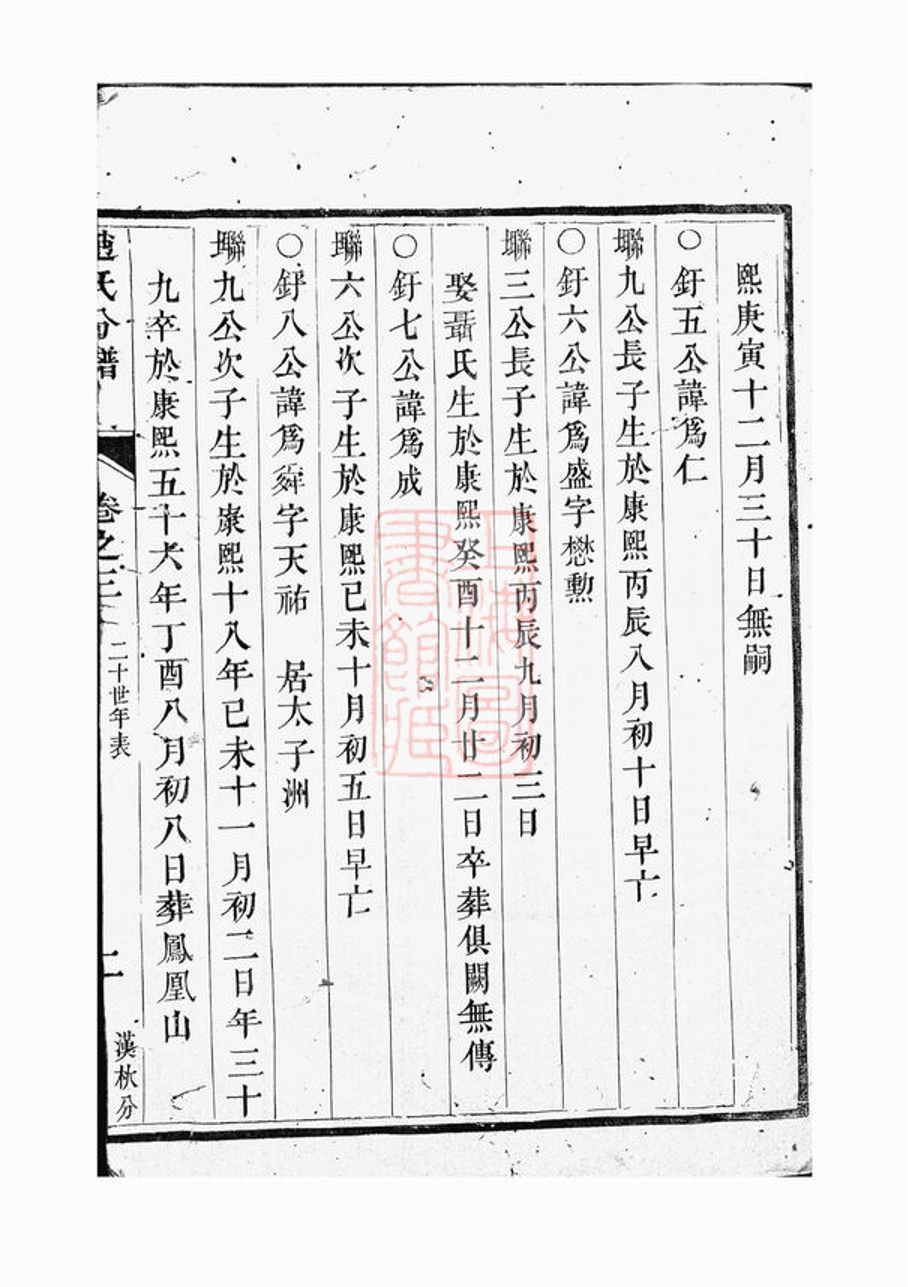 熙庚寅十二月三十日無嗣
○釪五公諱爲仁
聯九公長子生於康熙丙辰八月初十日早亡
○釪六公諱爲盛字懋勲
聯三公長子生於康熙丙辰九月初三日
娶聶氏生於康熙癸酉十二月廿二日卒葬俱闕無傳
○釪七公諱爲成
聯六公次子生於康熙已未十月初五日早亡
○釪八公諱爲舜字天祐 居太子洲
聯九公次子生於康熙十八年已未十一月初二日年三十
九卒於康熙五十六年丁酉八月初八日葬鳳凰山
趙氏分譜 卷之三 二十世年表 二 漢杕分
上海圖書館藏